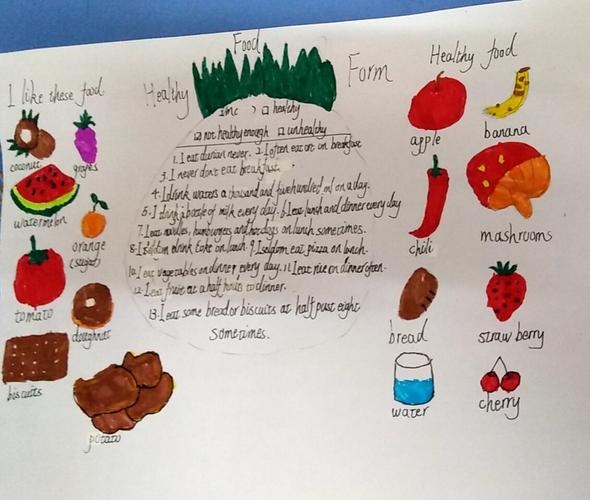 Food
Healthy
Form
Healthy food
I like these food
coconut
grapes
watermelon
orange
tomato
doughnut
biscuits
potato
healthy
not healthy enough unhealthy
1. I eat durian never. 2. I often eat on breakfast
3. I never don't eat breakfast.
4. I drink waters a thousand and five hundred ml on a day.
5. I drink a bottle of milk every day. 6. I eat lunch and dinner every day
7. I eat noodles, humburgers and hot dogs on lunch sometimes.
8. I seldom drink on lunch. 9. I seldom eat pizza on lunch.
10. I eat vegetables on dinner every day. 11. I eat rice on dinner often.
12. I eat fruit at a half hours to dinner.
13. I eat some bread or biscuits at half past eight
sometimes.
apple
banana
chili
mashrooms
bread
strawberry
water
cherry